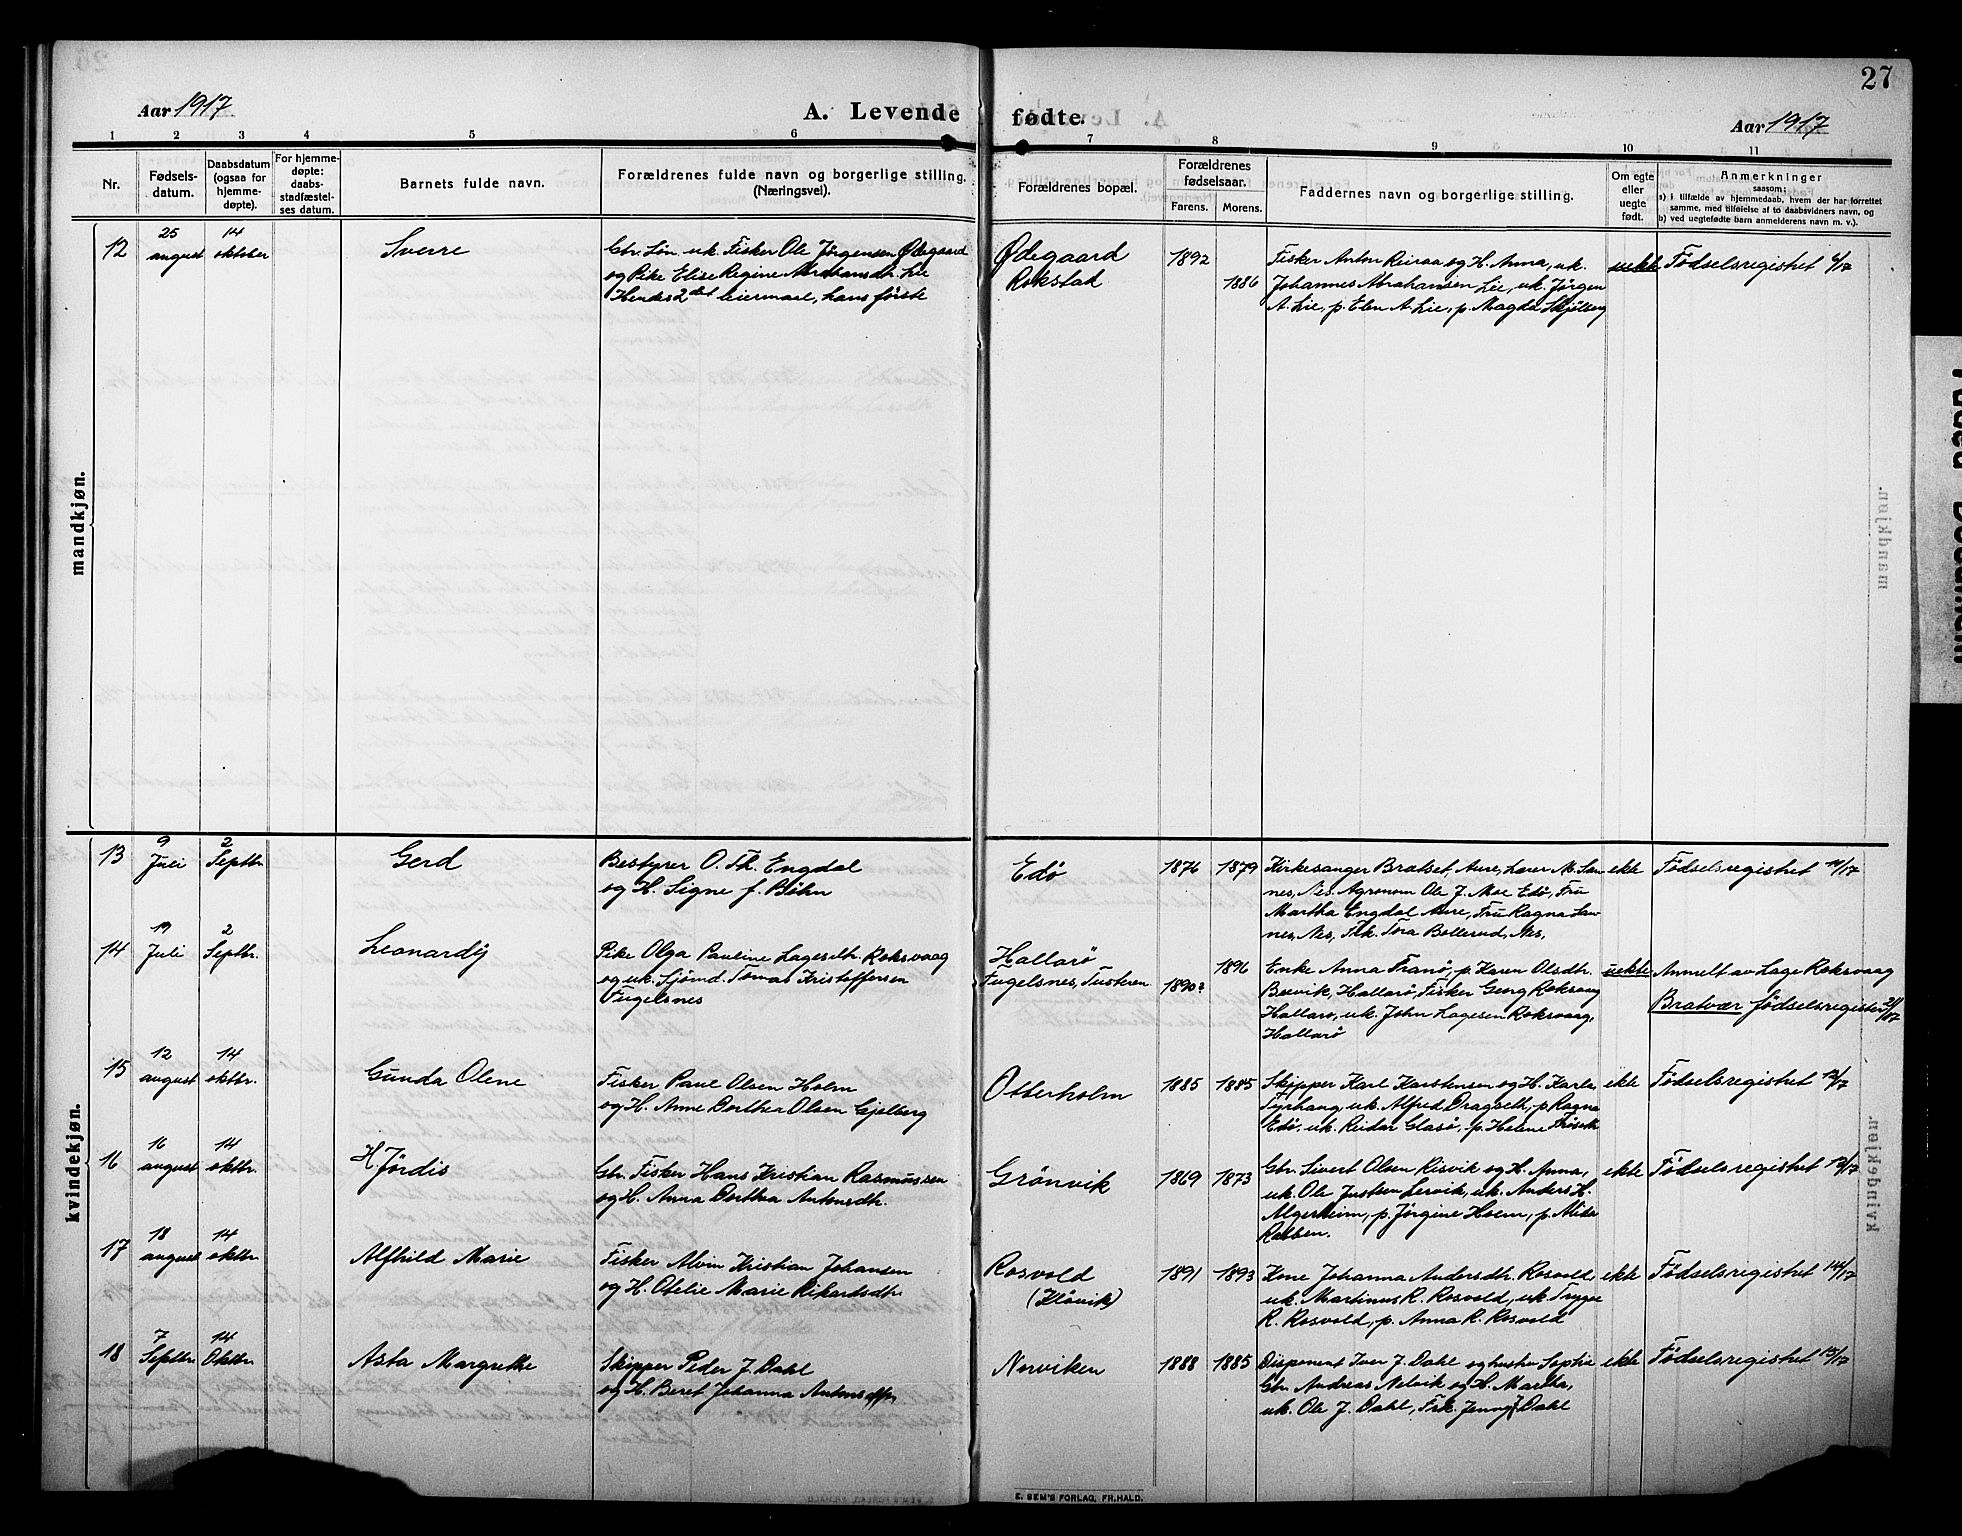 27
Aar 1917
A. Levende fødte.
Aar 1917
1 2 3 4 5 6 7 8 9 10 11
Nr.
Fødsels-
datum.
Daabsdatum
(ogsaa for
hjemme-
døpte).
For hjemme-
døpte:
daabs-
stadfæstel-
ses datum.
Barnets fulde navn.
Forældrenes fulde navn og borgerlige stilling.
(Næringsvei).
Forældrenes bopæl.
Forældrenes
fødselsaar.
Farens. Morens.
Faddernes navn og borgerlige stilling.
Om egte
eller
uegte
født.
Anmerkninger
saasom:
a) i tilfælde av hjemmedaab, hvem der har forrettet
samme, med tilføielse af to daabsvidners navn, og
b) ved uegtefødte barn anmelderens navn m. v.).
mandkjøn.
12
25
august
14
oktober
Sverre
Gbr. Søn uk. Fisker Ole Jørgensen Ødegaard
og Pike Elise Regine Abrahamsdtr. Lie
Hendes 2det leiermaal, hans første
Ødegaard
Rokstad
1892
1886
Fisker Anton Reiraa og H. Anna, uk.
Johannes Abrahamsen Lie, uk. Jørgen
A. Lie, p. Elen A. Lie, p. Magda Skjølberg
uekte
Fødselsregistret 6/17
kvindekjøn.
13
9
Juli
2
Septbr
Gerd
Bestyrer O. Th. Engdal
og H. Signe f. Bøhn
Edø
1876 1879
Kirkesanger Bratset, Aure, Lærer M. San-
nes, Nes. Agronom Ole J. Moe Edø, Fru
Martha Engdal Aure, Fru Ragna San-
nes, Nes, Frk. Tora Bollerud, Nes,
ekte
Fødselsregistret 11/17
14
19
Juli
2
Septbr.
Leonardy
Pike Olga Pauline Lagesdtr. Roksvaag
og uk. Sjømd. Tomas Kristoffersen
Fugelsnes
Hallarø
Fugelsnes, Tusteren
1890? 1896
Enke Anna Tranø, p. Karen Olsdtr.
Bervik, Hallarø, Fisker Georg Roksvaag
Hallarø, uk. John Lagesen Roksvaag,
Hallarø
uekte
Anmelt av Lage Roksvaag
Bratvær fødselsregister 21/17
15
12
august
14
oktbr.
Gunda Olene
Fisker Paul Olsen Holm
og H. Anne Dorthea Olsen Gjelberg
Otterholm
1885 1885
Skipper Karl Karstensen og H. Karla
Tyrhaug, uk. Alfred Dragseth, p. Ragna
Edø, uk. Reidar Glasø, p. Helene Frøseth
ekte
Fødselsregistret 12/17
16
16
august
14
oktbr.
Hjördis
Gbr. Fisker Hans Kristian Rasmussen
og H. Anna Dorthea Antonsdtr.
Grønvik
1869 1873
Gbr. Sivert Olsen Risvik og H. Anna,
uk. Ole Justsen Lervik, uk. Anders H.
Algerheim, p. Jørgine Holm, p. Alida
Rabben.
ekte
Fødselsregistret 13/17
17
18
august
14
oktbr
Alfhild Marie
Fisker Alvin Kristian Johansen
og H. Otelie Marie Rikardsdtr.
Rosvold
(Kløvik)
1891 1893
Kone Johanna Andersdtr. Rosvold,
uk. Martinus R. Rosvold, uk Trygve
R. Rosvold, p. Anna R. Rosvold
ekte
Fødselsregistret 14/17
18
7
Septbr.
14
Oktbr
Asta Margrethe
Skipper Peder J. Dahl
og H. Beret Johanna Antonsdtr.
Norviken
1888 1885
Disponent Iver J. Dahl og hustru Sophie
Gbr. Andreas Nelvik og H. Martha,
uk. Ole J. Dahl, Frk. Jenny J. Dahl
ekte
Fødselsregistret 15/17
E. SEM'S FORLAG, FR.HALD.